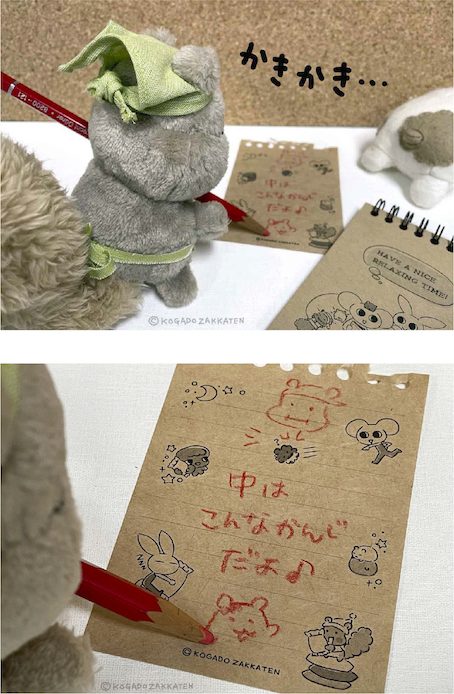 かきかき…
B200-121
中は
こんなかんじ
だよ♪
© KOGADO ZAKKATEN
HAVE A NICE
RELAXING TIME!
© KOGADO ZAKKATEN
中は
こんなかんじ
だよ♪
zzz
© KOGADO ZAKKATEN
© KOGADO ZAKKATEN